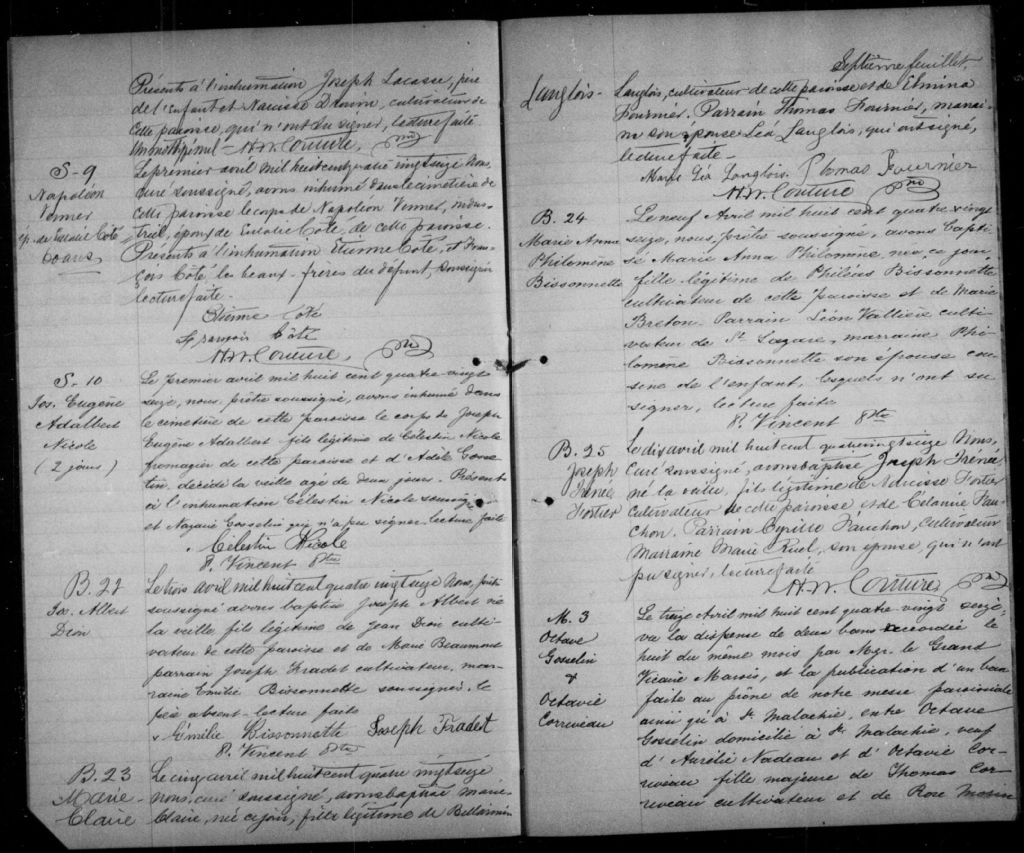 Présents à l'inhumation Joseph Lacasse, père
de l'Enfant et Narcisse Drouin, cultivateurs de
cette paroisse, qui n'ont su signer, lecture faite.
H.W. Couture, Ptre
S-9
Napoléon
Venner
ep. de Eulalie Côté
60 ans
Le premier avril mil huit cent quatre vingt seize Nous,
curé soussigné, avons inhumé dans le cimetière de
cette paroisse le corps de Napoléon Venner, indus-
triel, époux de Eulalie Côté, de cette paroisse.
Présents à l'inhumation Etienne Côté, et Fran-
çois Côté, les beaux-frères du défunt, soussignés
lecture faite.
Etienne Côté
François Côté
H.W. Couture, Ptre
S-10
Jos. Eugène
Adalbert
Nicole
(2 jours)
Le premier avril mil huit cent quatre-vingt
seize, nous, prêtre soussigné, avons inhumé dans
le cimetière de cette paroisse le corps de Joseph
Eugène Adalbert fils légitime de Célestin Nicole
fromager de cette paroisse et d'Adèle Gosse-
lin, décédé la veille agé de deux jours. Présents
à l'inhumation Célestin Nicole soussigné
et Nazaire Gosselin qui n'a pu signer, lecture faite
Célestin Nicole
P. Vincent Ptre
B. 22
Jos. Albert
Dion
Le trois avril mil huit cent quatre vingt seize Nous, prêtre
soussigné avons baptisé Joseph Albert né
la veille, fils légitime de Jean Dion culti-
vateur de cette paroisse et de Marie Beaumont
parrain Joseph Fradet cultivateur, mar-
raine Emilie Bissonnette soussignés, le
père absent - lecture faite
Emilie Bissonnette Joseph Fradet
P. Vincent Ptre
B. 23
Marie-
Claire
Le cinq avril mil huit cent quatre vingt seize
nous, curé soussigné, avons baptisé Marie
Claire, née ce jour, fille légitime de Bellarmin
Septième feuillet
Langlois-
Langlois, cultivateur de cette paroisse et de Elmina
Fournier. Parrain Thomas Fournier, marrai-
ne son épouse Léa Langlois, qui ont signé,
lecture faite -
Marie Léa Langlois. Thomas Fournier
H.W. Couture Ptre
B. 24
Marie Anna
Philomène
Bissonnette
Le neuf Avril mil huit cent quatre vingt
seize, nous, prêtre soussigné, avons bapti-
sé Marie Anna Philomène, née ce jour
fille légitime de Philéas Bissonnette
cultivateur de cette paroisse et de Marie
Breton. Parrain Léon Vallière culti-
vateur de St Lazare, marraine Phi-
lomène Bissonnette son épouse cou-
sine de l'enfant, lesquels n'ont su
signer, lecture faite
P. Vincent Ptre
B. 25
Joseph
Irénée
Fortier
Le dix avril mil huit cent quatre vingt seize Nous,
Curé soussigné, avons baptisé Joseph Iréné
né la veille, fils légitime de Narcisse Fortier
cultivateur de cette paroisse et de Célanire Fau-
chon. Parrain Cyrille Fauchon, cultivateur
Marraine Marie Ruel, son épouse, qui n'ont
pu signer, lecture faite
H.W. Couture, Ptre
M. 3
Octave
Gosselin
&
Octavie
Corriveau
Le treize Avril mil huit cent quatre vingt seize,
vu la dispense de deux bans accordée le
huit du même mois par Mgr. le Grand
Vicaire Marois, et la publication d'un ban
faite au prône de notre messe paroissiale
ainsi qu'à St. Malachie, entre Octave
Gosselin domicilié à St. Malachie, veuf
d'Aurélie Nadeau et d'Octavie Cor-
riveau fille majeure de Thomas Cor-
riveau cultivateur et de Rose Morin